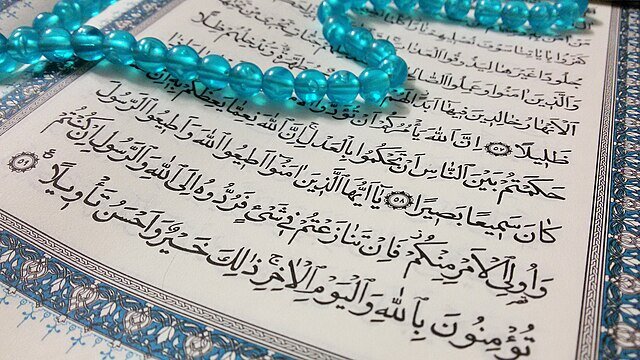 كَفَرُوا بِاٰيَاتِنَا سَوْفَ نُصْلِيهِمْ نَارًا
جُلُودًا غَيْرَهَا لِيَذُوقُوا الْعَذَابَ
وَالَّذِينَ اٰمَنُوا وَعَمِلُوا الصَّالِحَاتِ
الْاَنْهَارُ خَالِدِينَ فِيهَا اَبَدًا لَهُمْ
ظَلِيلًا ﴿٥٧﴾ اِنَّ اللّٰهَ يَأْمُرُكُمْ اَنْ تُؤَدُّوا
حَكَمْتُمْ بَيْنَ النَّاسِ اَنْ تَحْكُمُوا بِالْعَدْلِ اِنَّ اللّٰهَ نِعِمَّا يَعِظُكُمْ بِهِ اِنَّ
كَانَ سَمِيعًا بَصِيرًا ﴿٥٨﴾ يَٓا اَيُّهَا الَّذِينَ اٰمَنُٓوا اَطِيعُوا اللّٰهَ وَاَطِيعُوا الرَّسُولَ
وَاُو۬لِي الْاَمْرِ مِنْكُمْ فَاِنْ تَنَازَعْتُمْ فِي شَيْءٍ فَرُدُّوهُ اِلَى اللّٰهِ وَالرَّسُولِ اِنْ كُنْتُمْ
تُؤْمِنُونَ بِاللّٰهِ وَالْيَوْمِ الْاٰخِرِ ذٰلِكَ خَيْرٌ وَاَحْسَنُ تَأْوِيلًا ﴿٥٩﴾